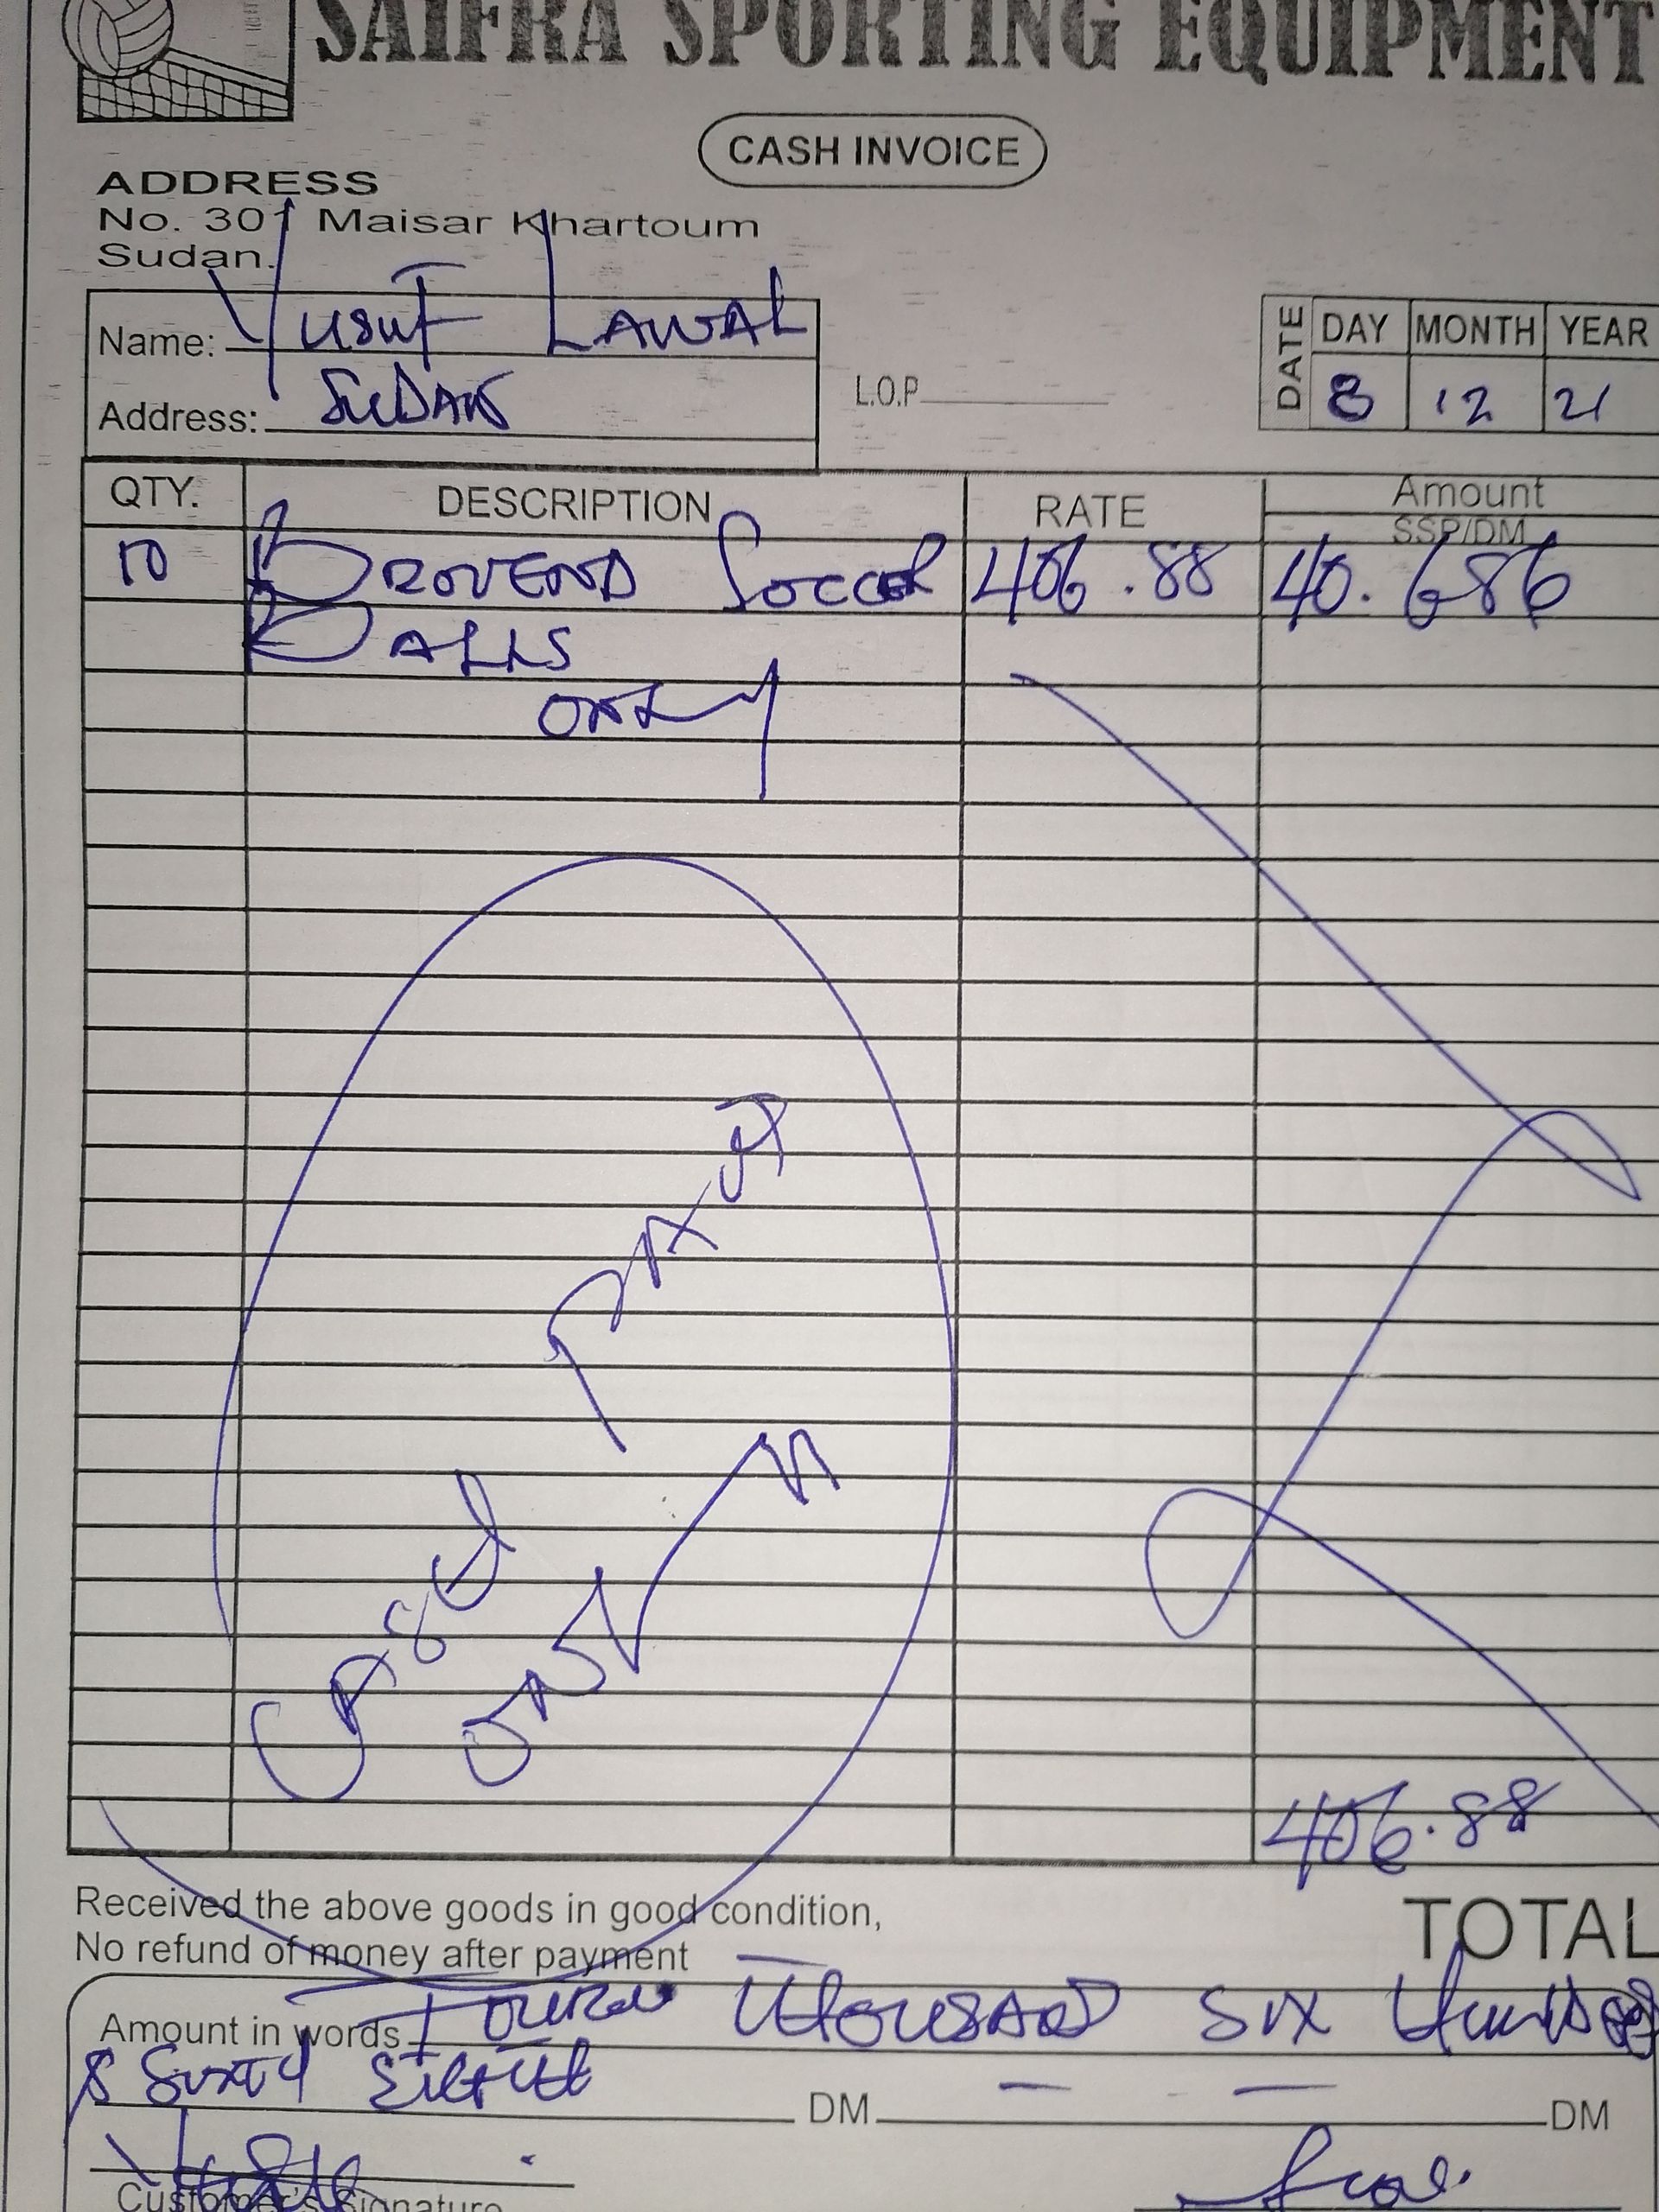 SAIFRA SPORTING EQUIPMENT
CASH INVOICE
ADDRESS
No. 301 Maisar Khartoum
Sudan.
Name: Yusuf LAWAL
Address: SUDAN
L.O.P
DATE DAY MONTH YEAR
8 12 21
QTY. DESCRIPTION RATE Amount
SSP/DM
10 SOCCER 406.88 40.686
BALLS
ONLY
406.88
Received the above goods in good condition,
No refund of money after payment
TOTAL
Amount in words THOUSAND SIX HUNDRED
& SIXTY EIGHT
DM DM
Customer's Signature